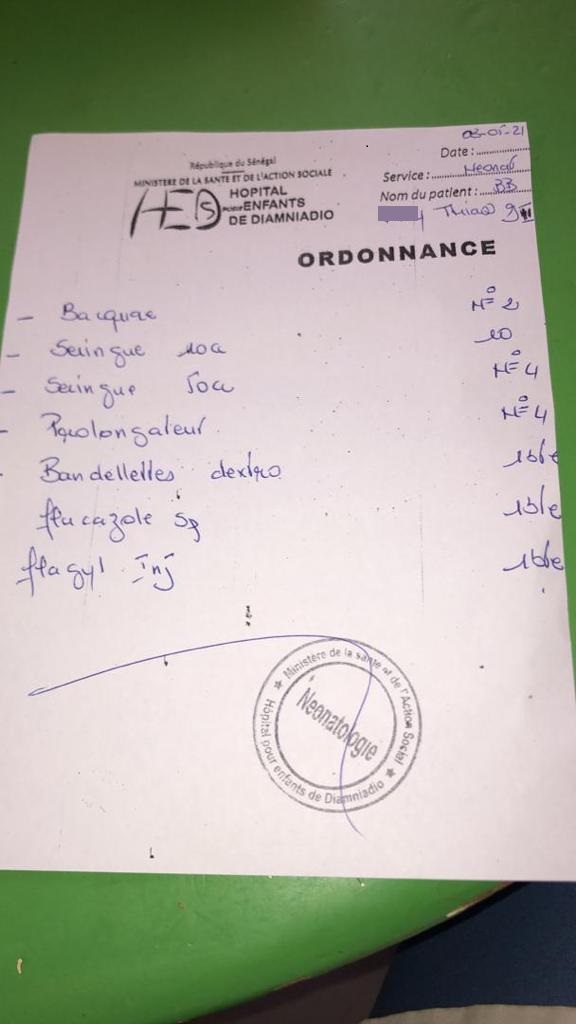 République du Sénégal
MINISTERE DE LA SANTE ET DE L'ACTION SOCIALE
HED(S)
HOPITAL
POUR ENFANTS
DE DIAMNIADIO
Date :
Service : Neonat
Nom du patient : BB
Thiao
ORDONNANCE
N° 2
- Seringue 10cc 10
- Seringue 50cc N° 4
- Prolongateur N° 4
- Bandellettes dextro 1bte
flucazole 1ble
flagyl Inj 1ble
Ministère de la santé et de l'Action Social
Hôpital pour enfants de Diamniadio
Néonatologie